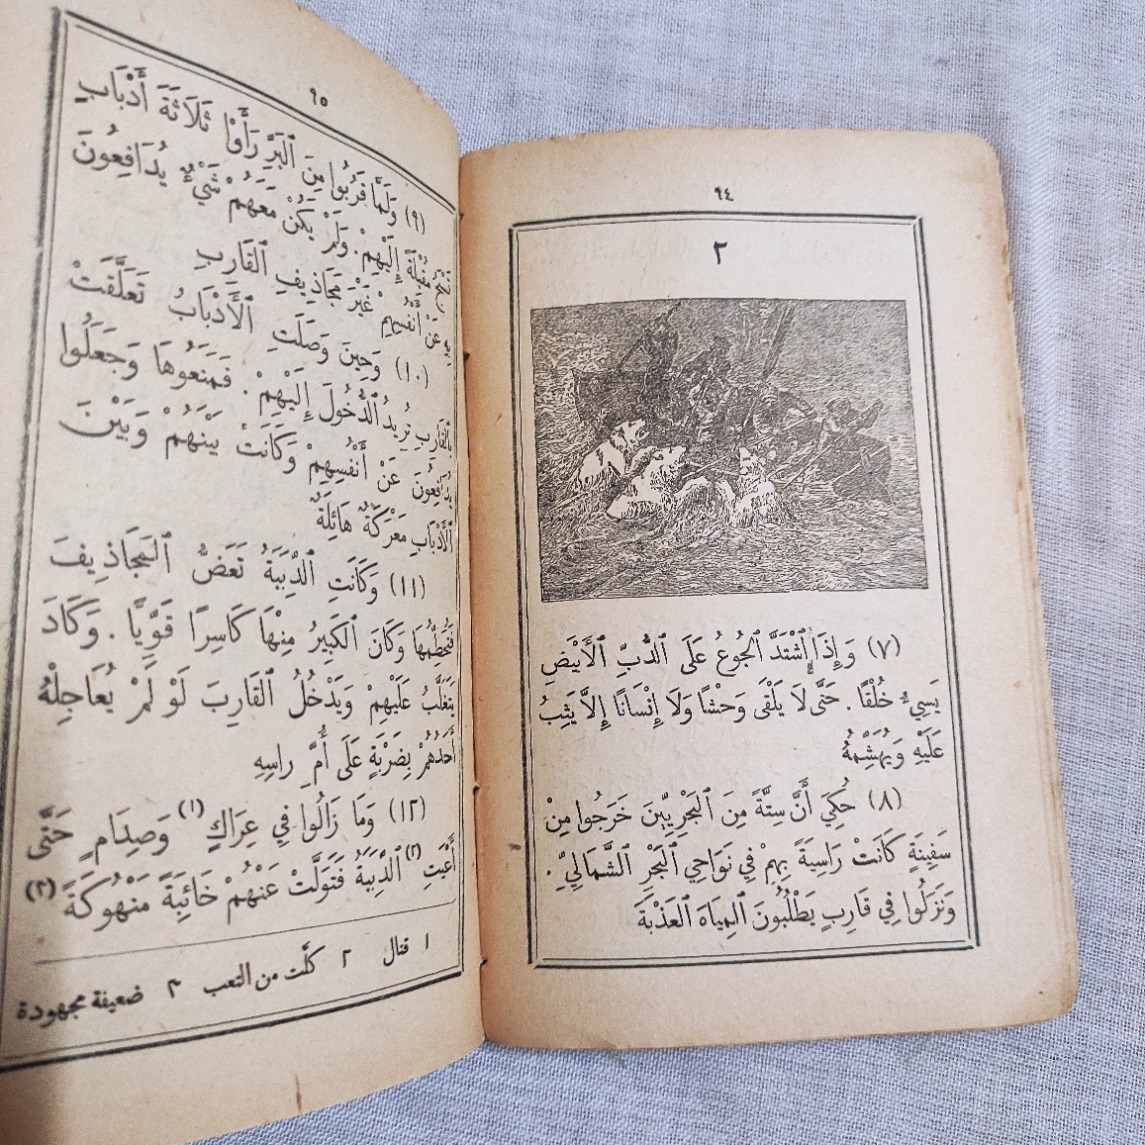 ٩٤
٢
(٧) وَإِذَا ٱشْتَدَّ ٱلجُوعُ عَلَى ٱلدُّبِّ ٱلأَبْيَضِ
يَسِيءُ خُلْقًا . حَتَّى لَا يَلْقَى وَحْشًا وَلَا إِنْسَانًا إِلَّا يَثِبُ
عَلَيْهِ وَيُهَشِّمُهُ
(٨) حُكِيَ أَنَّ سِتَّةً مِنَ ٱلبَحْرِيِّينَ خَرَجُوا مِنْ
سَفِينَةٍ كَانَتْ رَاسِيَةً بِهِمْ فِي نَوَاحِي ٱلبَحْرِ ٱلشَّمَالِيِّ .
وَنَزَلُوا فِي قَارِبٍ يَطْلُبُونَ ٱلمِيَاهَ ٱلعَذْبَةَ
٩٥
(٩) وَلَمَّا قَرُبُوا مِنَ ٱلبَرِّ رَأَوْا ثَلَاثَةَ أَدْبَابٍ
مُقْبِلَةً إِلَيْهِمْ . وَلَمْ يَكُنْ مَعَهُمْ شَيْءٌ يُدَافِعُونَ
عَنْ أَنْفُسِهِمْ غَيْرَ مَجَاذِيفِ ٱلقَارِبِ
(١٠) وَحِينَ وَصَلَتِ ٱلأَدْبَابُ تَعَلَّقَتْ
بِٱلقَارِبِ تُرِيدُ ٱلدُّخُولَ إِلَيْهِمْ . فَمَنَعُوهَا وَجَعَلُوا
يُدَافِعُونَ عَنْ أَنْفُسِهِمْ وَكَانَتْ بَيْنَهُمْ وَبَيْنَ
ٱلأَدْبَابِ مَعْرَكَةٌ هَائِلَةٌ
(١١) وَكَانَتِ ٱلدِّبَبَةُ تَعَضُّ ٱلمَجَاذِيفَ
فَتُحَطِّمُهَا وَكَانَ ٱلكَبِيرُ مِنْهَا كَاسِرًا قَوِيًّا . وَكَادَ
يَتَغَلَّبُ عَلَيْهِمْ وَيَدْخُلُ ٱلقَارِبَ لَوْ لَمْ يُعَاجِلْهُ
أَحَدُهُمْ بِضَرْبَةٍ عَلَى أُمِّ رَاسِهِ
(١٢) وَمَا زَالُوا فِي عِرَاكٍ (١) وَصِدَامٍ حَتَّى
أَعْيَتِ (٢) ٱلدِّبَبَةُ فَتَوَلَّتْ عَنْهُمْ خَائِبَةً مَنْهُوكَةً (٣)
١ قتال ٢ كلَّت من التعب ٣ ضعيفة مجهودة